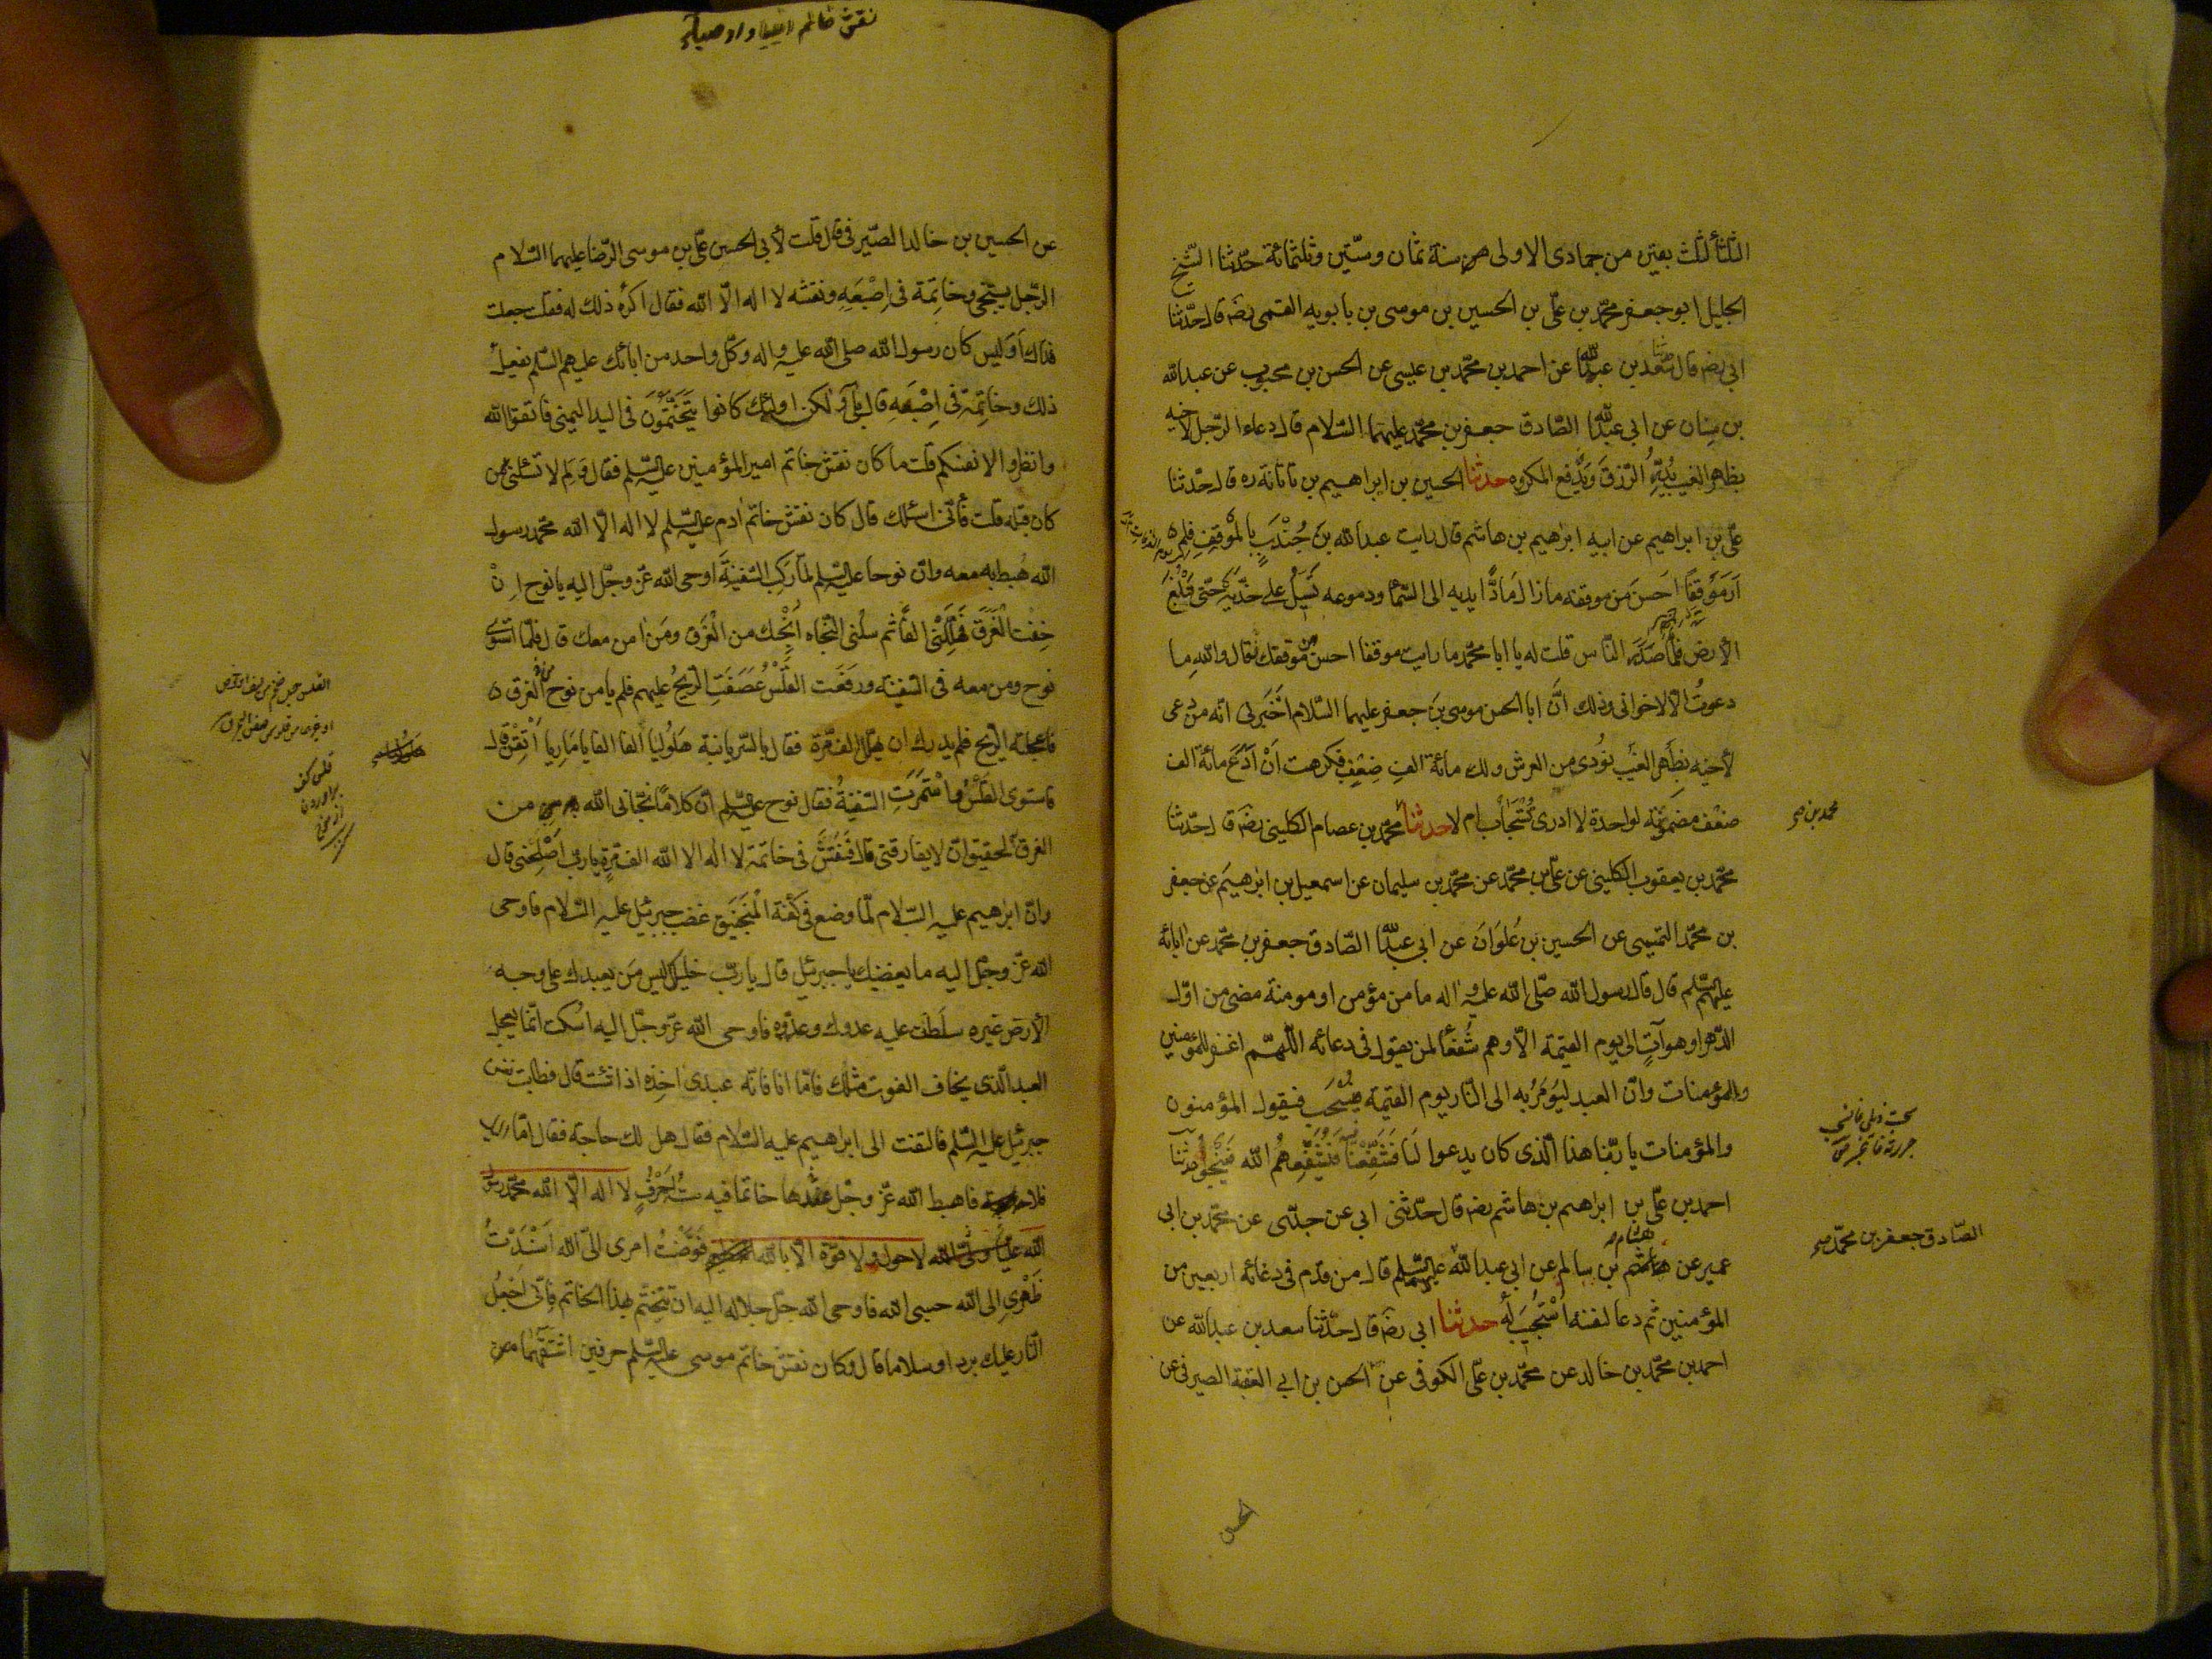 الثلثأ لثلث بقين من جمادى الاولى من سنة ثمان وستّين وثلثمائة حدّثنا الشيخ
الجليل ابو جعفر محمّد بن علىّ بن الحسين بن موسى بن بابويه القمى رضه قال حدّثنا
ابى رضه قال سعد بن عبدالله عن احمد بن محمّد بن عيسى عن الحسن بن محبوب عن عبدالله
بن سنان عن ابى عبدالله الصّادق جعفر بن محمّد عليهما السّلام قال دعاء الرّجل لاخيه
بظهر الغيب الرّزق ويدفع المكروه حدثنا الحسين بن ابراهيم بن ناتانة ره قال حدّثنا
علىّ بن ابراهيم عن ابيه ابراهيم بن هاشم قال رايت عبدالله بن جُنْدَبٍ بالمَوْقِفِ فلم
اَرَ مَوْقِفًا اَحسَنَ من موقفه ما زال مَادًّا يديه الى السّمآ ودموعه تَسيلُ على خدّيه حتّى تَبْلُغَ
الأرضَ فلمّا صَدَرَ النّاس قلت له يا ابا محمّد ما رايت موقفا احسن من موقفك فقال والله ما
دعوتُ الّا لاخوانى وذلك انَّ ابا الحسن موسى بنَ جعفر عليهما السّلام اَخْبَرنى انّه من دعى
لأخيه بظَهر الغَيْب نُودى من العرش ولك مائة الفِ ضِعْفٍ فكرهت اَنْ اَدَعَ مائة الف
ضعْف مضمونة لواحدة لا ادرى تُسْتَجَاب ام لا حدثنا محمّد بن عصام الكلينى رضه قال حدّثنا
محمّد بن يعقوب الكلينى عن علىّ بن محمّد عن محمّد بن سليمان عن اسمعيل بن ابراهيم عن جعفر
بن محمّد التميمى عن الحسين بن عُلوَانَ عن ابى عبدالله الصّادق جعفر بن محمّد عن ابائه
عليهم السّلم قال قال رسول الله صلّى الله عليه واله ما من مؤمن او مومنة مضى من اوّل
الدّهر او هو آتٍ الى يوم القيمة الّا وهم شُفعاً لمن يقول فى دعائه اللّهمّ اغفر للمؤمنين
والمؤمنات وانّ العبد ليُومَرُ به الى النّار يوم القيمة فيُسْحَب فيقول المؤمنون
والمؤمنات يا ربّنا هذا الّذى كان يدعوا لَنَا فشَفِّعْنَا فيه فيُشَفّعهُم الله فينجو حدثنا
احمد بن علىّ بن ابراهيم بن هاشم رضه قال حدّثنى ابى عن جدّى عن محمّد بن ابى
عمير عن هشام بن سالم عن ابى عبدالله عليه السّلم قال من قدّم فى دعائه اربعين من
المؤمنين ثم دعا لنفسه اسْتُجيبَ لَه حدثنا ابى رضه قال حدّثنا سعد بن عبدالله عن
احمد بن محمّد بن خالد عن محمّد بن علىّ الكوفى عن الحسن بن ابى العقبة الصيرفى عن
محمد بن
الصّادق جعفر بن محمّد
نقش خاتم انبيا و اوصيا
عن الحسين بن خالد الصّيرفى قال قلت لأبى الحسن علىّ بن موسى الرّضا عليهما السّلام
الرّجل يستنجى وخاتِمه فى اِصْبَعِهِ ونقشه لا اله الّا الله فقال اكرهُ ذلك له فقلت جعلت
فداك اَوَليس كان رسول الله صلى الله عليه واله وكلّ واحد من ابائك عليهم السّلم يفعلُ
ذلك وخاتمه فى اِصْبَعِهِ قال بلى ولكن اولئك كانوا يَتَخَتَّمُونَ فى اليد اليمنى فاتقوا الله
وانظروا لانفسكم قلت ما كان نقش خاتم امير المؤمنين عليه السّلم فقال ولِمَ لا تسئلنى عمن
كان قبله قلت فأنّى اسئلك قال كان نقش خاتم ادم عليه السّلم لا اله الّا الله محمّد رسول
الله هُبط به معه وانّ نوحا عليه السّلم لمّا رَكِبَ السّفينَة اوحى الله عزّ وجلّ اليه يا نوح اِنْ
خِفْتَ الْغَرَقَ فَهَلِّلْنى الفاً ثم سلْنى النّجاه اُنْجِك من الْغَرَق ومَن امن معك قال فلمّا استوى
نوح ومن معه فى السّفينه ورَفَعَت القلْسُ عَصَفَتِ الرّيحُ عليهم فلم يامن نوح الغرق
فاعجلته الرّيح فلم يدرك ان يهلّل الف مَرّة فقال بالسّريانية هَلُوليَا الفا الفا يا مَارِيا اَتْقِنْ قال
فاستوى القلْسُ واسْتَمَرّت السّفينةُ فقال نوح عليه السّلم انّ كلامًا نجّانى الله به من
الغرق لَحقيق انّ لا يفارقنى قال فنقش فى خاتمه لا اله الا الله الف مَرّةٍ يا ربّ اَصْلِحْنى قال
وانّ ابراهيم عليه السّلام لمّا وضع فى كَفّة الْمَنْجَنيق غضب جبرئيل عليه السّلام فاوحى
الله عزّ وجلّ اليه ما يغضبك يا جبرئيل قال يا ربّ خليلك ليس مَن يعبدك على وجه
الأرض غيره سلَّطْتَ عليه عدوك وعدّوه فاوحى الله عزّ وجلّ اليه اسكت انّما يعجل
العبد الّذى يخاف الفوت مثلك فامّا انا فانّه عبدى اخذه اذا شئت قال فطابت نفس
جبرئيل عليه السّلم فالتفت الى ابراهيم عليه السّلام فقال هل لك حاجة فقال امّا اليك
فلا فاهبط الله عزّ وجلّ عندها خاتما فيه ستّة اَحْرُفٍ لا اله الّا الله محمّد رسول
الله لا حول ولا قوّة الّا بالله فوَّضْتُ امرى الى الله اَسْنَدْتُ
ظَهْرى الى الله حسبى الله فاوحى الله جلّ جلاله اليه ان تختّم بهذا الخاتم فانّى اجعَلُ
النّار عليك بردا وسلاما قال وكان نقش خاتم موسى عليه السّلم حرفين اشتقّهما من